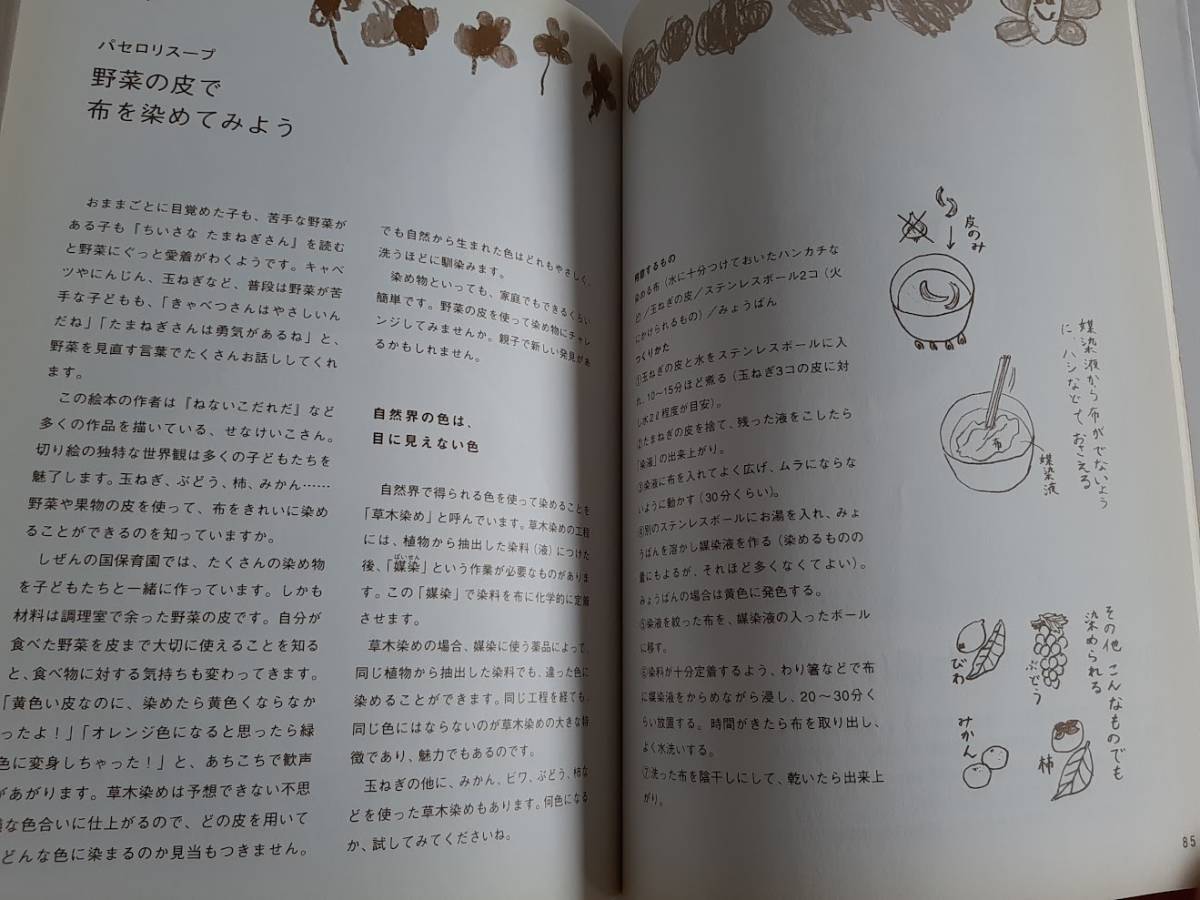 パセロリスープ
野菜の皮で
布を染めてみよう
おままごとに目覚めた子も、苦手な野菜が
ある子も『ちいさな たまねぎさん』を読む
と野菜にぐっと愛着がわくようです。キャベ
ツやにんじん、玉ねぎなど、普段は野菜が苦
手な子どもも、「きゃべつさんはやさしいん
だね」「たまねぎさんは勇気があるね」と、
野菜を見直す言葉でたくさんお話ししてくれ
ます。
この絵本の作者は『ねないこだれだ』など
多くの作品を描いている、せなけいこさん。
切り絵の独特な世界観は多くの子どもたちを
魅了します。玉ねぎ、ぶどう、柿、みかん……
野菜や果物の皮を使って、布をきれいに染め
ることができるのを知っていますか。
しぜんの国保育園では、たくさんの染め物
を子どもたちと一緒に作っています。しかも
材料は調理室で余った野菜の皮です。自分が
食べた野菜を皮まで大切に使えることを知る
と、食べ物に対する気持ちも変わってきます。
「黄色い皮なのに、染めたら黄色くならなか
ったよ！」「オレンジ色になると思ったら緑
色に変身しちゃった！」と、あちこちで歓声
があがります。草木染めは予想できない不思
な色合いに仕上がるので、どの皮を用いて
どんな色に染まるのか見当もつきません。
でも自然から生まれた色はどれもやさしく、
洗うほどに馴染みます。
染め物といっても、家庭でもできるくらい
簡単です。野菜の皮を使って染め物にチャレ
ンジしてみませんか。親子で新しい発見があ
るかもしれません。
自然界の色は、
目に見えない色
自然界で得られる色を使って染めることを
「草木染め」と呼んでいます。草木染めの工程
には、植物から抽出した染料（液）につけた
後、「媒染」という作業が必要なものがありま
ばいせん
す。この「媒染」で染料を布に化学的に定着
させます。
草木染めの場合、媒染に使う薬品によって、
同じ植物から抽出した染料でも、違った色に
染めることができます。同じ工程を経ても、
同じ色にはならないのが草木染めの大きな特
徴であり、魅力でもあるのです。
玉ねぎの他に、みかん、ビワ、ぶどう、柿な
どを使った草木染めもあります。何色になる
か、試してみてくださいね。
用意するもの
染める布（水に十分つけておいたハンカチな
ど）／玉ねぎの皮／ステンレスボール2コ（火
にかけられるもの）／みょうばん
つくりかた
①玉ねぎの皮と水をステンレスボールに入
れ、10〜15分ほど煮る（玉ねぎ3コの皮に対
し水2ℓ程度が目安）。
②たまねぎの皮を捨て、残った液をこしたら
「染液」の出来上がり。
③染液に布を入れてよく広げ、ムラにならな
いように動かす（30分くらい）。
④別のステンレスボールにお湯を入れ、みょ
うばんを溶かし媒染液を作る（染めるものの
量にもよるが、それほど多くなくてよい）。
みょうばんの場合は黄色に発色する。
⑤染液を絞った布を、媒染液の入ったボール
に移す。
⑥染料が十分定着するよう、わり箸などで布
に媒染液をからめながら浸し、20〜30分く
らい放置する。時間がきたら布を取り出し、
よく水洗いする。
⑦洗った布を陰干しにして、乾いたら出来上
がり。
皮のみ
媒染液から布がでないよう
に、ハシなどで、おさえる
布
媒染液
その他 こんなものでも
染められる
びわ
ぶどう
みかん
柿
85